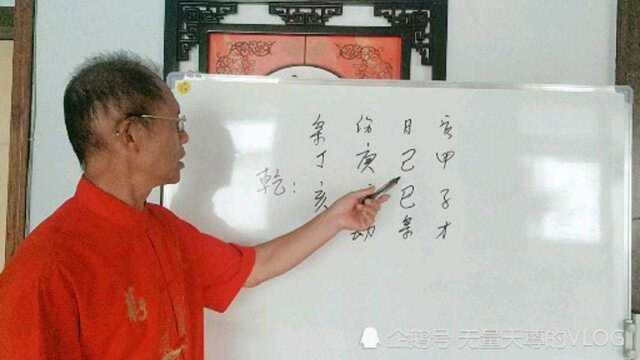 枭 伤 日 官
丁 庚 己 甲
乾: 亥 巳 子
劫 枭 才
企鹅号 无量天尊的VLOG